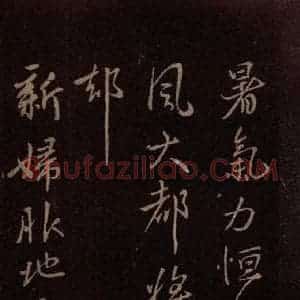 暑氣力恒
風大都將
却
新婦服地
Shufaziliao.COM